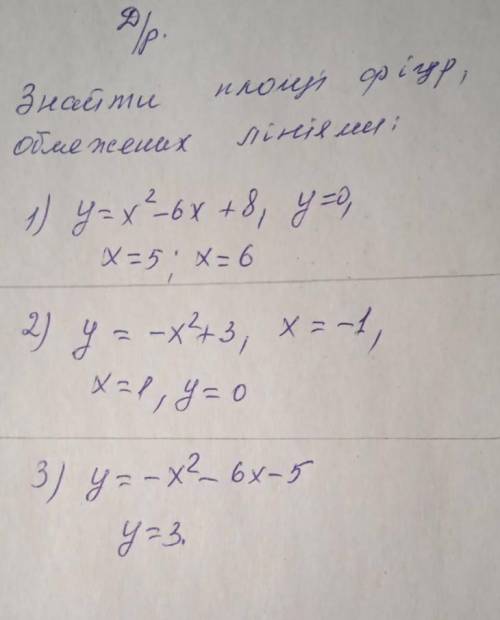 Д/р.
Знайти площі фігур,
обмежених лініями:
1) y = x² - 6x + 8, y = 0,
x = 5; x = 6
2) y = -x² + 3, x = -1,
x = 1, y = 0
3) y = -x² - 6x - 5
y = 3.